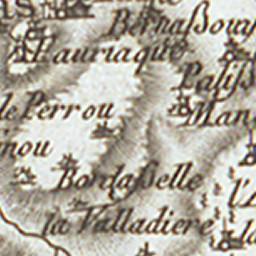 AS
Bernaßoua
Lauriaque
Paliß
le Perrou
Man
inou
Bordaßelle
l'A
la Valladiere
la